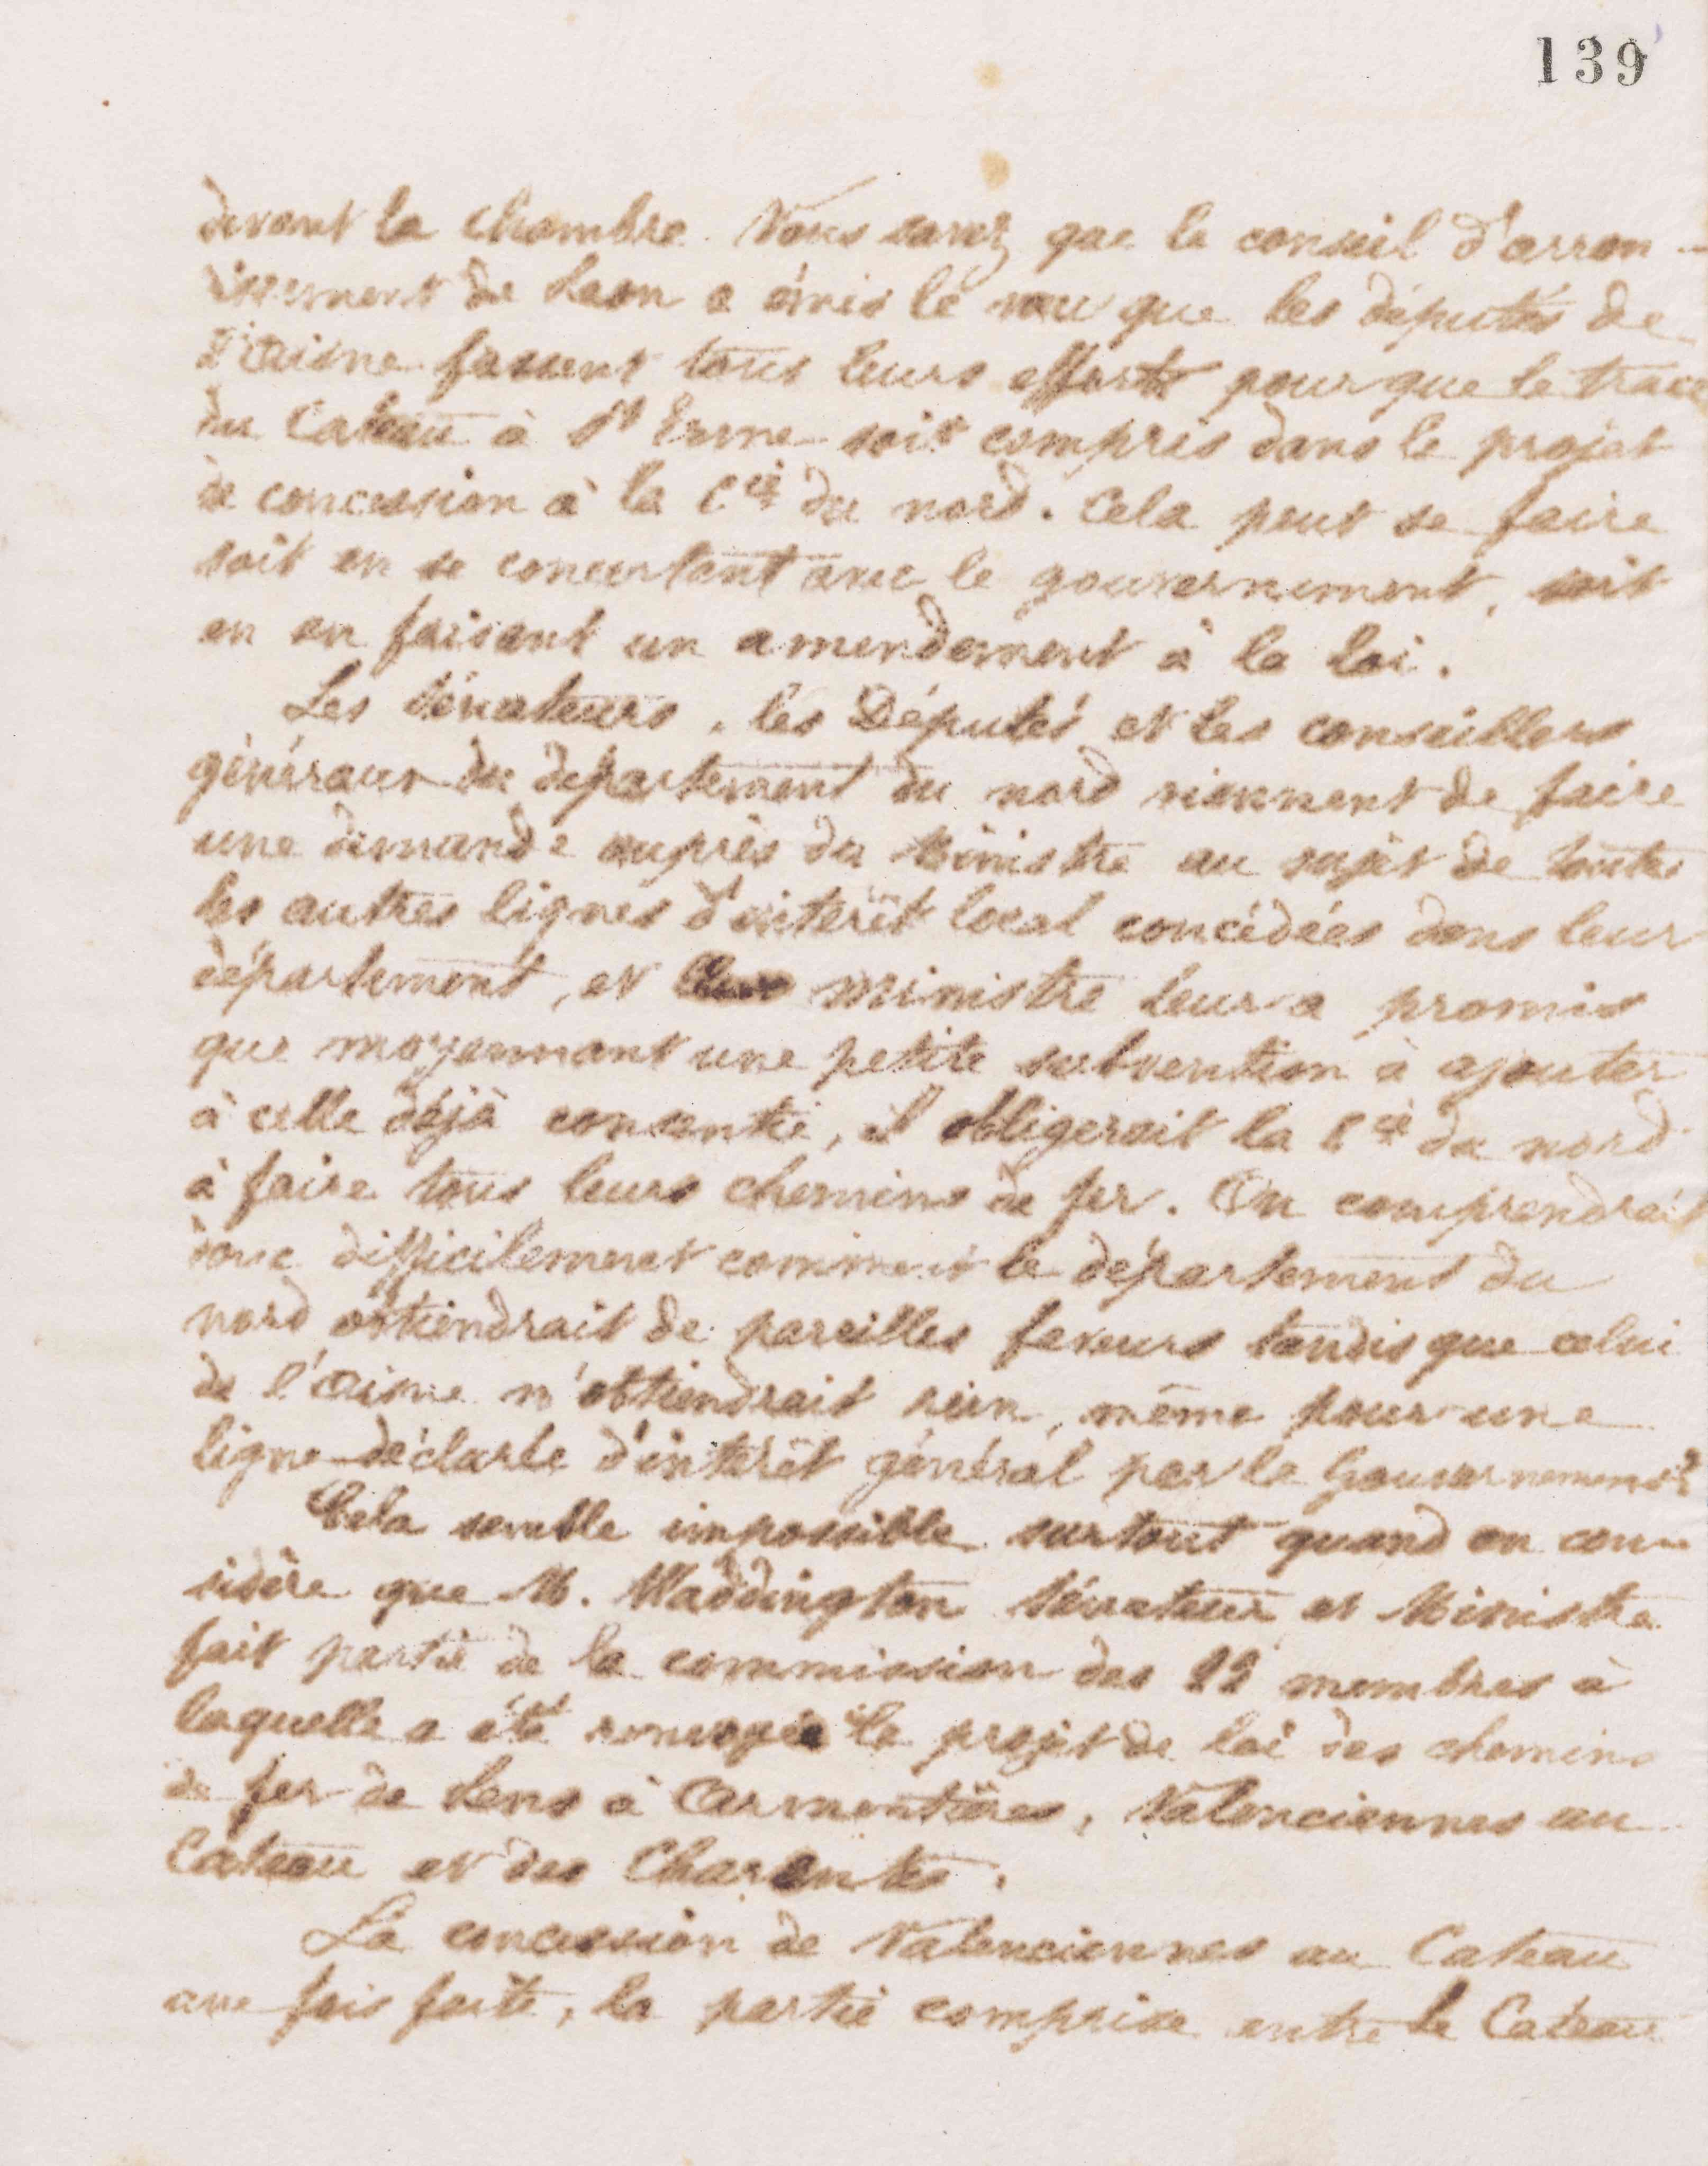 139
devant la chambre. Vous savez que le conseil d'arron-
dissement de Laon a émis le vœu que les députés de
l'Aisne fassent tous leurs efforts pour que le tracé
du Cateau à St Erme soit compris dans le projet
de concession à la Cie du nord. Cela peut se faire
soit en se concertant avec le gouvernement, soit
en en faisant un amendement à la loi.
Les Sénateurs, les Députés et les conseillers
généraux du département du nord viennent de faire
une demande auprès du Ministre au sujet de toutes
les autres lignes d'intérêt local concédées dans leur
département, et ministre leur a promis
que moyennant une petite subvention à ajouter
à celle déjà consentie, il obligerait la Cie du nord
à faire tous leurs chemins de fer. On comprendrait
donc difficilement comment le département du
nord obtiendrait de pareilles faveurs tandis que celui
de l'Aisne n'obtiendrait rien, même pour une
ligne déclarée d'intérêt général par le Gouvernement.
Cela semble impossible surtout quand on con-
sidère que M. Waddington Sénateur et Ministre
fait partie de la commission des 22 membres à
laquelle a été renvoyé le projet de loi des chemins
de fer de Lens à Armentières, Valenciennes au
Cateau et des Charentes.
La concession de Valenciennes au Cateau
une fois faite, la partie comprise entre le Cateau